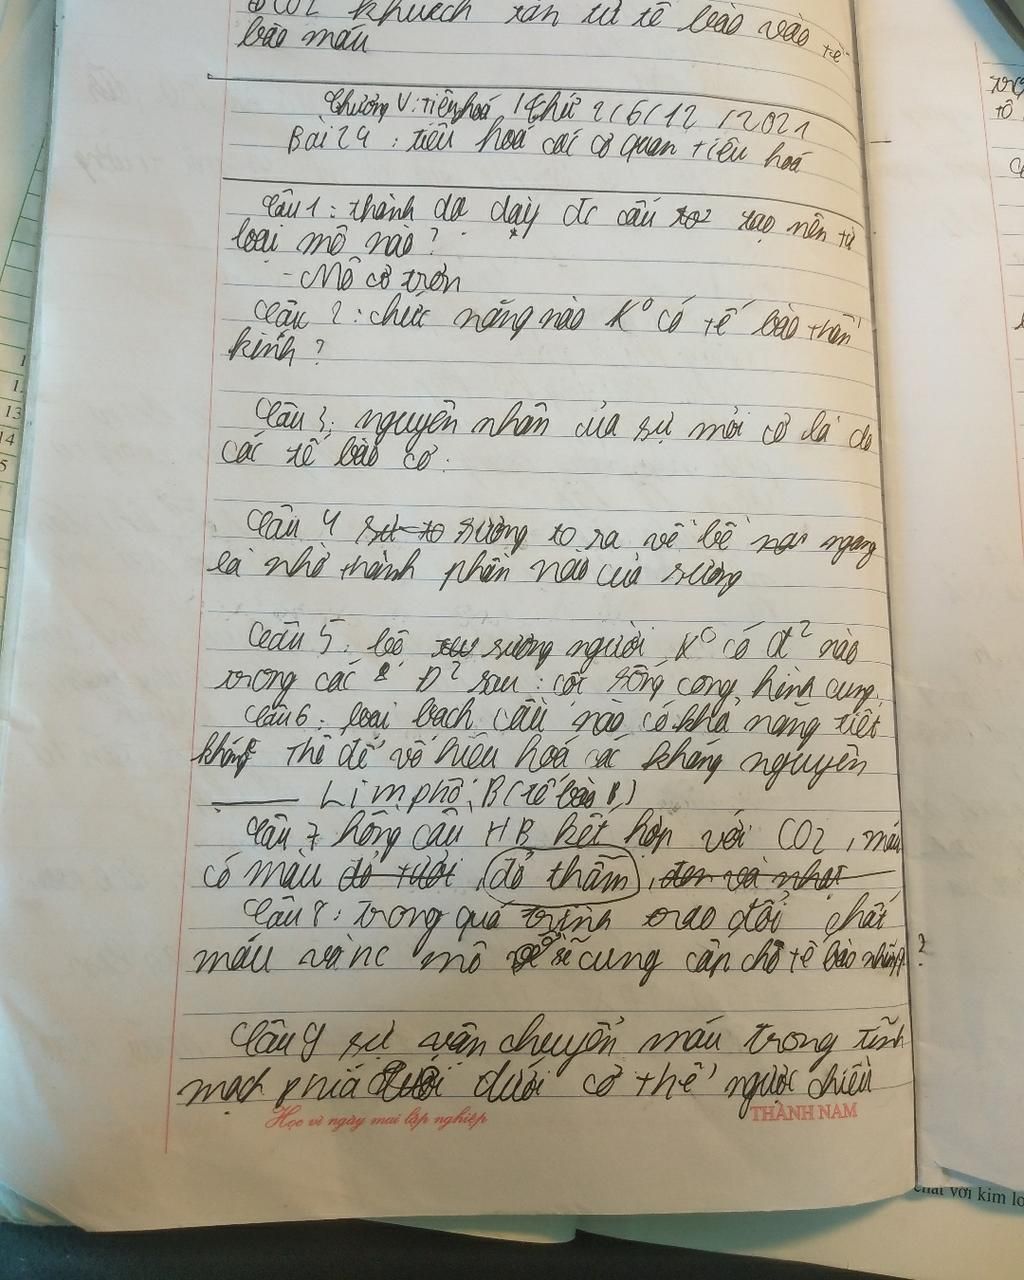 CO2 khuếch tán từ tế bào vào tế
bào máu
Chương V: tiêu hoá / thứ 2/6/12/2021
Bài 24: tiêu hoá các cơ quan tiêu hoá
Câu 1: thành dạ dày đc cấu tạo nên từ
loại mô nào?
- Mô cơ trơn
Câu 2: chức năng nào K° có tế bào thần
kinh?
Câu 3: nguyên nhân của sự mỏi cơ là do
các tế bào cơ:
Câu 4 xương to ra về bề ngang
là nhờ thành phần nào của xương
Câu 5: bộ xương người K° có đ² nào
trong các Đ² sau: cột sống cong, hình cung.
Câu 6: loại bạch cầu nào có khả năng tiết
kháng thể để vô hiệu hoá các kháng nguyên
Limphô B (tế bào B)
Câu 7 hồng cầu HB kết hợp với CO2, máu
có màu đỏ tươi, đỏ thẫm,
Câu 8: trong quá trình trao đổi chất
máu và nc mô sẽ cung cấp cho tế bào những ?
Câu 9 sự vận chuyển máu trong tĩnh
mạch phía dưới cơ thể ngược chiều
Học vì ngày mai lập nghiệp
THÀNH NAM
13
14
chất với kim lo